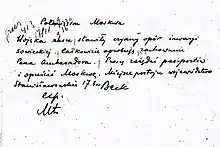 Moskwa
Wojska nasze stawiły czynny opór inwazji
sowieckiej. Całkowicie aprobuję zachowanie
Pana Ambasadora. Proszę zażądać paszportów
i opuścić Moskwę. Miejsce postoju województwo
Stanisławowskie 17.IX Beck